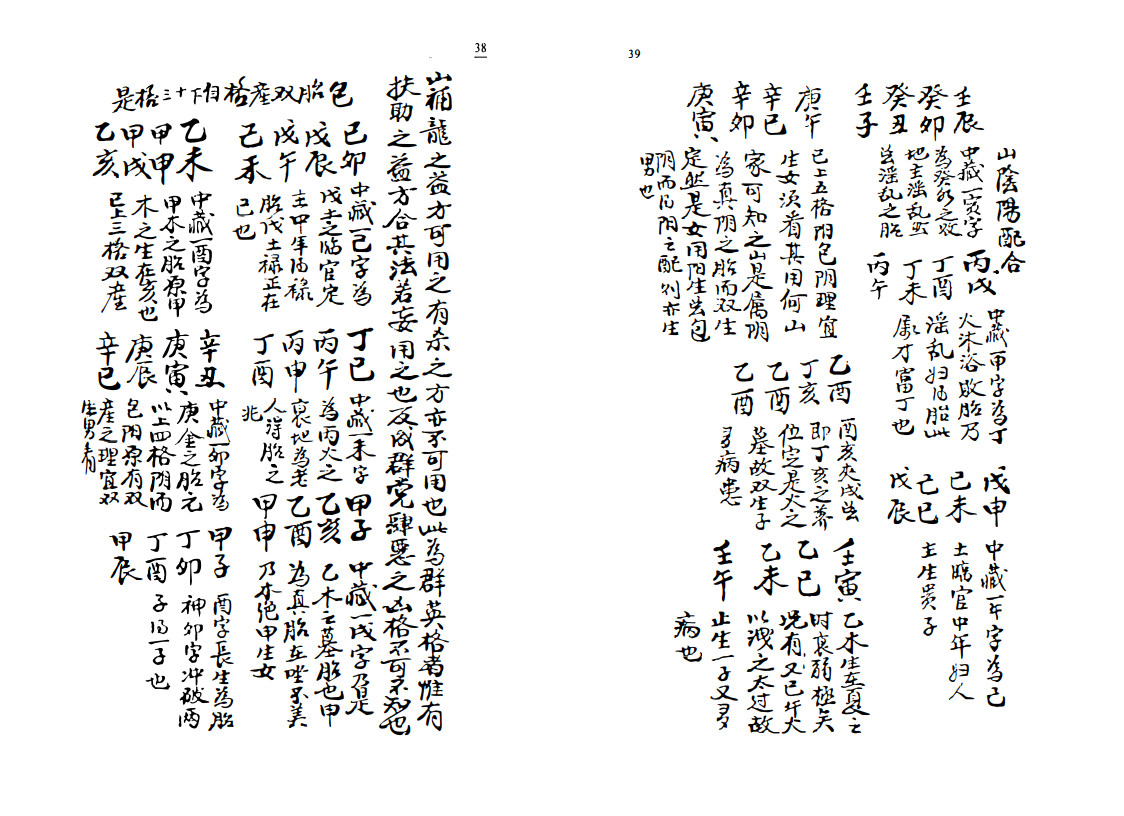 38
山補龍之益方可用之有杀之方亦不可用也此為群英格者惟有
扶助之益方合其法若妄用之也反成群党肆悪之凶格不可不知也
包胎双產格自下十三格是
己卯
戊辰
戊午
己未
中藏一己字為
戊土之临官定
主中年得禄
胎戊土禄正在
己也
丁巳
丙午
丙申
丁酉
中藏一未字
為丙火之
衰地為老
人得胎之
兆
甲子
乙亥
乙酉
甲申
中藏一戌字乃是
乙木之墓胎也甲
為真胎在坐不美
乃木绝甲生女
乙未
甲申
甲戌
乙亥
中藏一酉字為
甲木之胎原甲
木之生在亥也
已上三格双産
辛丑
庚寅
庚辰
辛巳
中藏一卯字為
庚金之胎元
以上四格阴而
包阳原有双
産之理宜双
生男者
甲子
丁卯
丁酉
甲辰
酉字長生為胎
神卯字冲破两
子得一子也
39
山陰陽配合
壬辰
癸卯
癸丑
壬子
中藏一寅字
為癸水之败
地主淫乱
淫乱之胎
丙戌
丁酉
丁未
丙午
中藏一甲字為丁
火沐浴败胎乃
淫乱妇得胎此
属才富丁也
戊申
己未
己巳
戊辰
中藏一午字為己
土臨官中年妇人
主生贵子
庚午
辛巳
辛卯
庚寅
已上五格阳包阴理宜
生女须看其用何山
家可知之山是属阴
為真阴之胎而双生
定然是女用阳生出包
阴而得阴之配则亦生
男也
乙酉
丁亥
乙酉
乙酉
酉亥夹戌出
即丁亥之养
位定是火之
墓故双生子
多病患
壬寅
乙巳
乙未
壬午
乙木生在夏之
时衰弱極矣
况有又巳午火
以洩之太过故
止生一子又多
病也